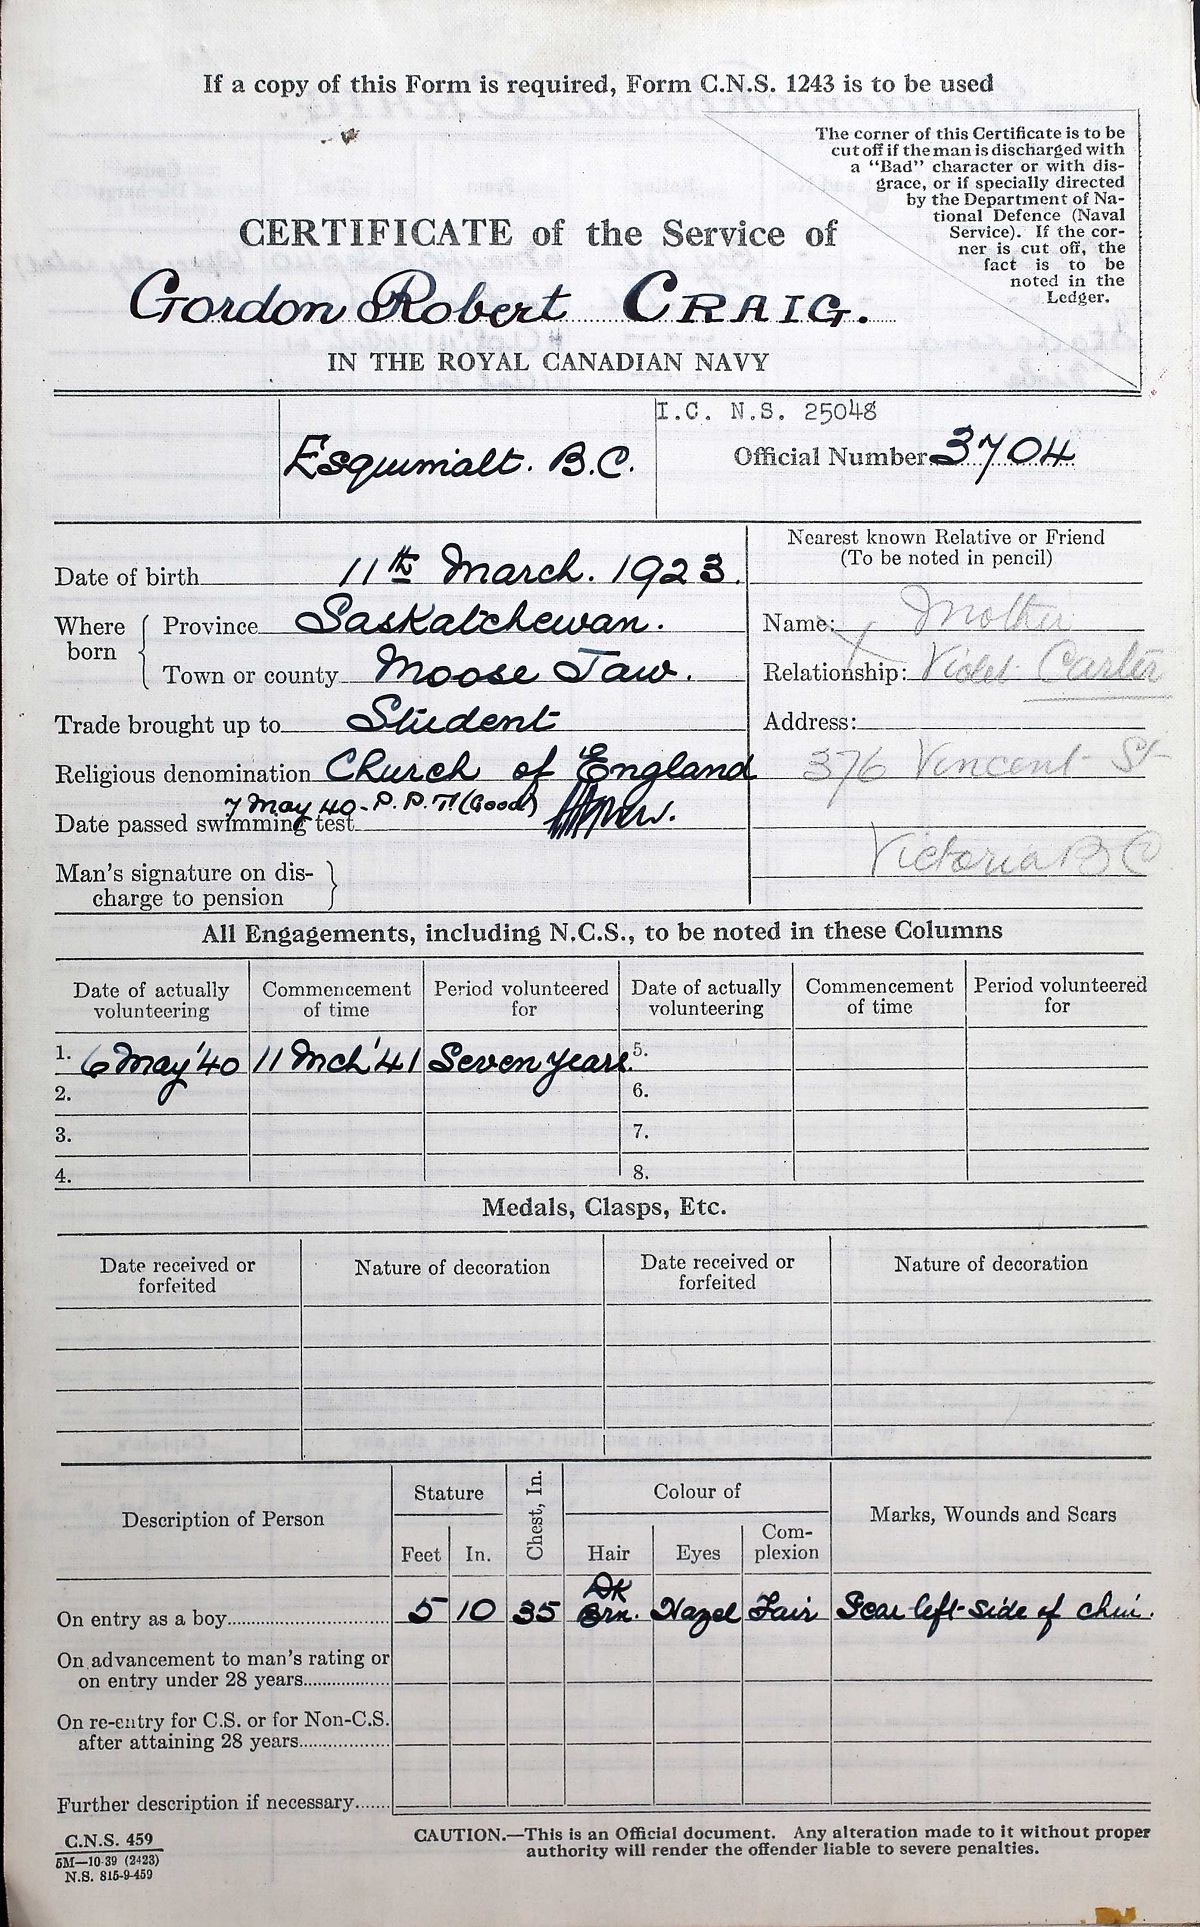 If a copy of this Form is required, Form C.N.S. 1243 is to be used
The corner of this Certificate is to be
cut off if the man is discharged with
a "Bad" character or with dis-
grace, or if specially directed
by the Department of Na-
tional Defence (Naval
Service). If the cor-
ner is cut off, the
fact is to be
noted in the
Ledger.
CERTIFICATE of the Service of
Gordon Robert CRAIG.
IN THE ROYAL CANADIAN NAVY
I.C. N.S. 25048
Esquimalt. B.C.
Official Number 3704
Nearest known Relative or Friend
(To be noted in pencil)
Date of birth 11th March. 1923.
Where born
Province Saskatchewan.
Name: Mother
Town or county Moose Jaw.
Relationship: Violet Carter
Trade brought up to Student
Address:
Religious denomination Church of England
376 Vincent St
7 May 40 - P.P.T. (Good)
Date passed swimming test
Victoria B C
Man's signature on dis-
charge to pension
All Engagements, including N.C.S., to be noted in these Columns
Date of actually volunteering Commencement of time Period volunteered for Date of actually volunteering Commencement of time Period volunteered for
1. 6 May '40 11 Mch '41 Seven years. 5.
2. 6.
3. 7.
4. 8.
Medals, Clasps, Etc.
Date received or forfeited Nature of decoration Date received or forfeited Nature of decoration
Description of Person Stature Chest, In. Colour of Marks, Wounds and Scars
Feet In. Hair Eyes Com-plexion
On entry as a boy 5 10 35 Dk Brn. Hazel Fair Scar left side of chin.
On advancement to man's rating or
on entry under 28 years
On re-entry for C.S. or for Non-C.S.
after attaining 28 years
Further description if necessary
C.N.S. 459
5M—10-39 (2423)
N.S. 815-9-459
CAUTION.—This is an Official document. Any alteration made to it without proper
authority will render the offender liable to severe penalties.